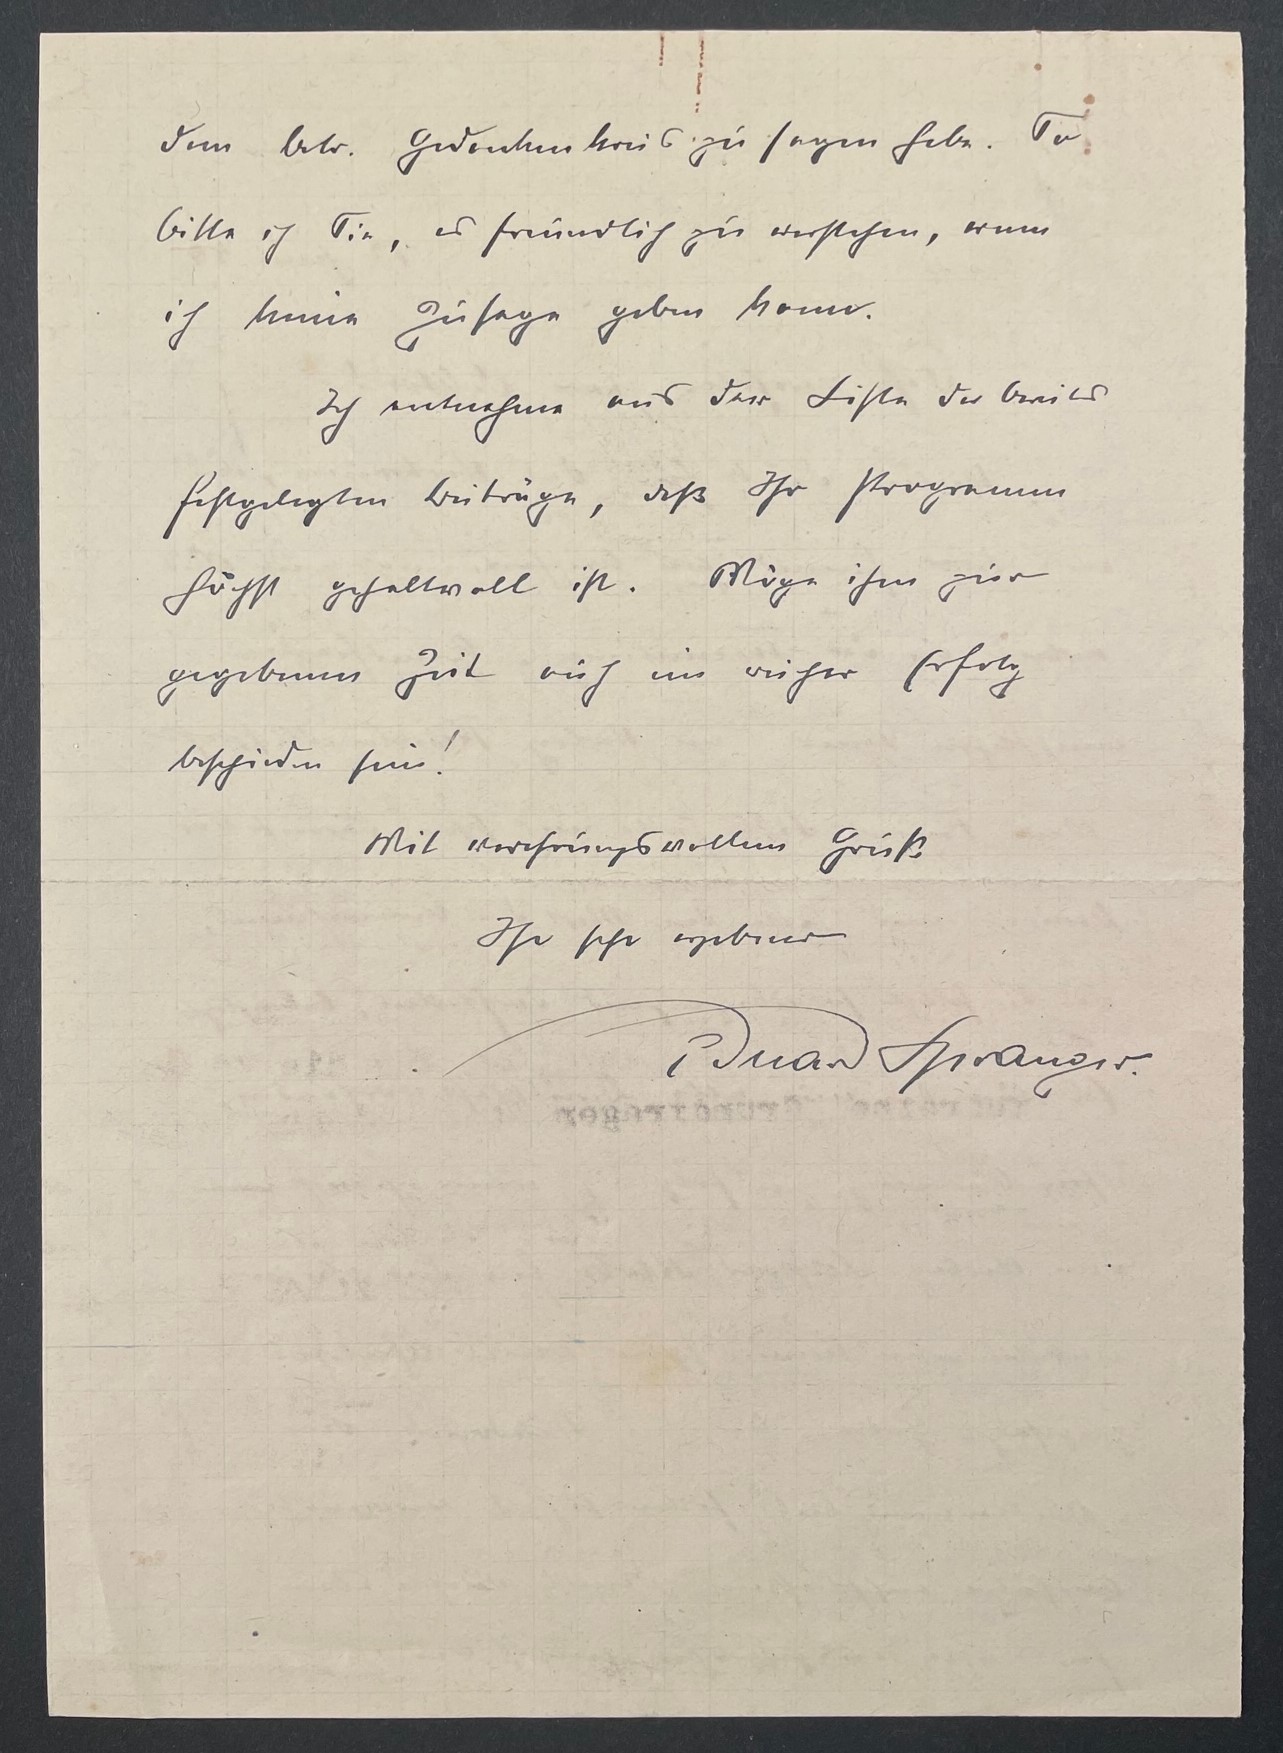 dem betr. Gedankenkreis zu sagen habe. So
bitte ich Sie, es freundlich zu verstehen, wenn
ich keine Zusage geben kann.
Ich entnehme aus der Liste der bereits
festgelegten Beiträge, daß Ihr Programm
höchst gehaltvoll ist. Möge ihm zur
gegebenen Zeit auch ein reicher Erfolg
beschieden sein!
Mit verehrungsvollem Gruß
Ihr sehr ergebener
Eduard Spranger.